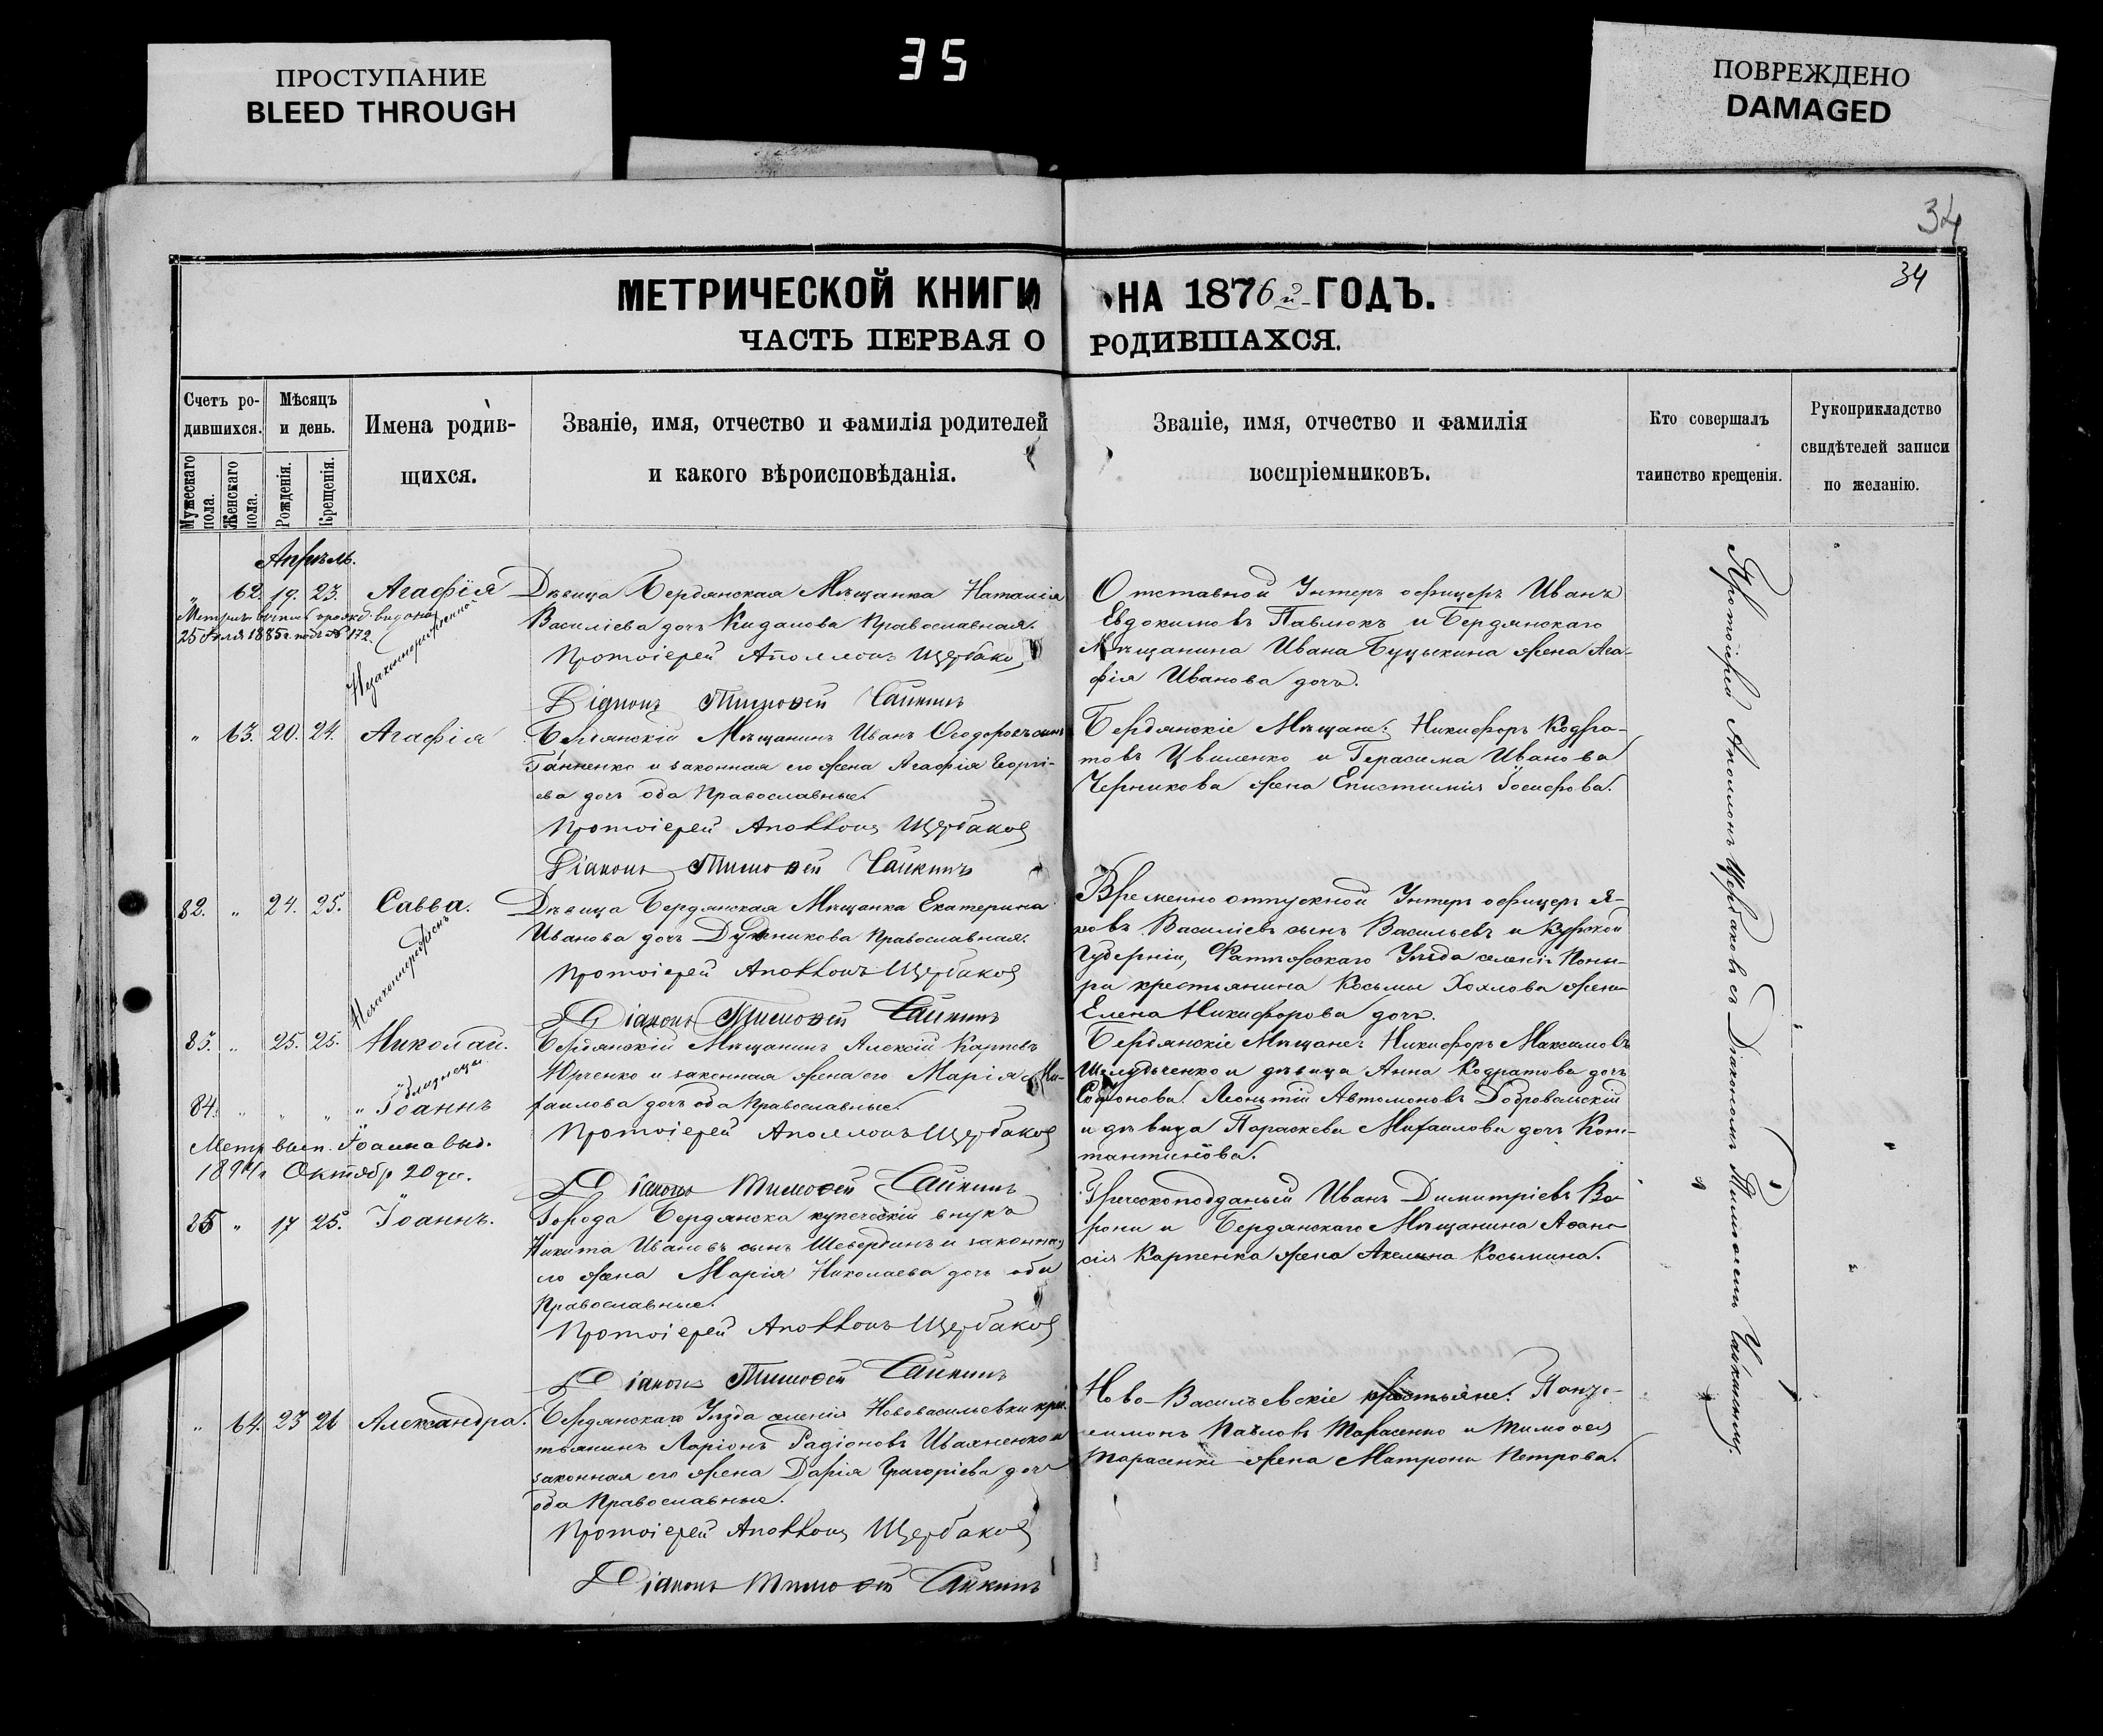 ПРОСТУПАНИЕ
BLEED THROUGH
35
ПОВРЕЖДЕНО
DAMAGED
34
34
МЕТРИЧЕСКОЙ КНИГИ НА 1876й ГОДЪ.
ЧАСТЬ ПЕРВАЯ О РОДИВШАХСЯ.
Счетъ ро-
дившихся.
Мужескаго пола.
Женскаго пола.
Мѣсяцъ
и день.
Рожденія.
Крещенія.
Имена родив-
щихся.
Званіе, имя, отчество и фамилія родителей
и какого вѣроисповѣданія.
Званіе, имя, отчество и фамилія
воспріемниковъ.
Кто совершалъ
таинство крещенія.
Рукоприкладство
свидѣтелей записи
по желанію.
Апрѣль.
„ 62. 19. 23. Агафія
25 1885 г. подъ № 172
Незаконнорожденной
Дѣвица Бердянская Мѣщанка Наталія
Василіева дочь Православная.
Протоіерей Аполлонъ Щербаковъ
Діаконъ Тимоѳей Чайкинъ
Отставной Унтеръ офицеръ Иванъ
Евдокимовъ Павлюкъ и Бердянскаго
Мѣщанина Ивана Буцыкина жена Ага-
фія Иванова дочь.
„ 63. 20. 24. Агафія
Бердянскій Мѣщанинъ Иванъ Ѳеодоровъ сынъ
Ганненко и законная его жена Агафія Георгі-
ева дочь оба Православные.
Протоіерей Аполлонъ Щербаковъ
Діаконъ Тимоѳей Чайкинъ
Бердянскіе Мѣщане: Никифоръ Кодра-
товъ Цвиленко и Герасима Иванова
Черникова жена Епистимія Іосифова.
82. „ 24. 25. Савва.
Незаконнорожденъ
Дѣвица Бердянская Мѣщанка Екатерина
Иванова дочь Православная.
Протоіерей Аполлонъ Щербаковъ
Діаконъ Тимоѳей Чайкинъ
Временно отпускной Унтеръ офицеръ Я-
ковъ Василіевъ сынъ Васильевъ и Курской
Губерніи, Фатежскаго Уѣзда селенія Поны-
ри крестьянина Косьмы Хохлова жена
Елена Никифорова дочь.
83. „ 25. 25. Николай.
близнецы
84. „ „ „ Іоаннъ
Метр. вып. Іоанна выд.
1894 г. Октябр 20 дн.
Бердянскій Мѣщанинъ Алексій Карповъ
Юрченко и законная жена его Марія Ми-
хаилова дочь оба Православные.
Протоіерей Аполлонъ Щербаковъ
Діаконъ Тимоѳей Чайкинъ
Бердянскіе Мѣщане: Никифоръ Максимовъ
Шелудченко и дѣвица Анна Кодратова дочь
Леонтій Автомоновъ Добровольскій
и дѣвица Параскева Михаилова дочь Конс-
тантинова.
85 „ 17 25. Іоаннъ.
Города Бердянска купеческій внукъ
Никита Ивановъ сынъ Шевердинъ и законная
его жена Марія Николаева дочь оба
Православные.
Протоіерей Аполлонъ Щербаковъ
Діаконъ Тимоѳей Чайкинъ
Греческоподданый Иванъ Димитріевъ Ва-
рони и Бердянскаго Мѣщанина Аѳана-
сія Карпенка жена Акелина Косьмина.
„ 64. 23 26 Александра.
Бердянскаго Уѣзда селенія Нововасильевки крес-
тьянинъ Ларіонъ Радіоновъ Иваненко и
законная его жена Дарія Григоріева дочь
оба Православные.
Протоіерей Аполлонъ Щербаковъ
Діаконъ Тимоѳей Чайкинъ
Ново-Васильевскіе крестьяне: Панте-
леимонъ Павловъ Тарасенко и Тимоѳея
Тарасенка жена Матрона Петрова.
Протоіерей Аполлонъ Щербаковъ съ Діакономъ Тимоѳеемъ Чайкинымъ.